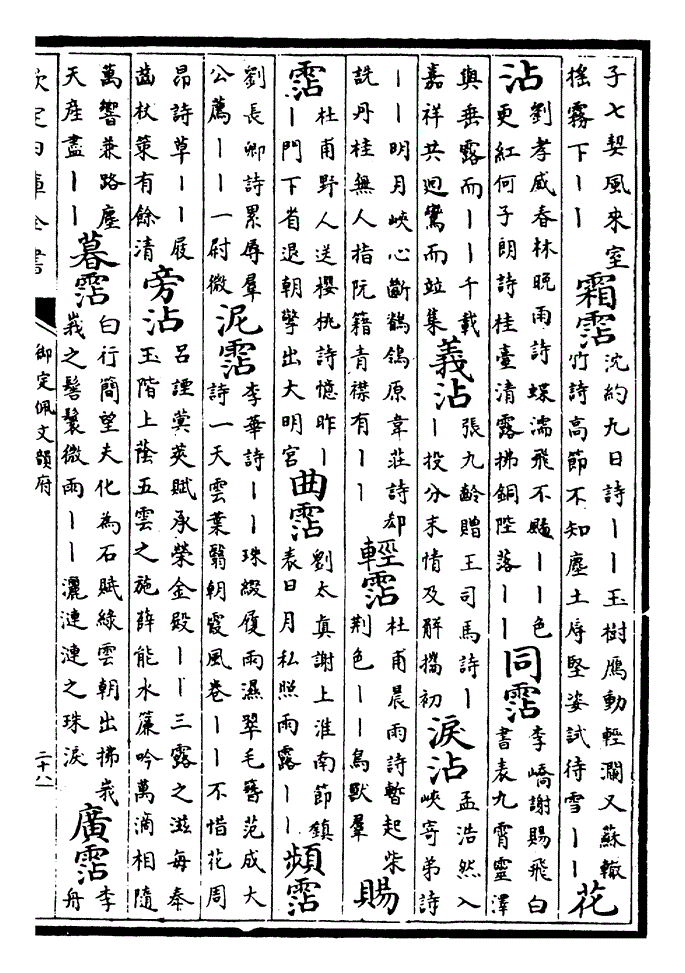 子七契風來室
搖霧下丨丨
霜霑
沈約九日詩丨丨玉樹鴈動輕瀾又蘇轍
竹詩高節不知塵土辱堅姿試待雪丨丨
花
沾
劉孝威春林晚雨詩蝶濡飛不颺丨丨色
更紅何子朗詩桂臺清露拂銅陛落丨丨
同霑
李嶠謝賜飛白
書表九霄靈澤
與垂露而丨丨千載
嘉祥共迴鸞而竝集
義沾
張九齡贈王司馬詩丨
丨投分末情及解攜初
淚沾
孟浩然入
峽寄弟詩
丨丨明月峽心斷鶺鴒原韋莊詩却
詵丹桂無人指阮籍青襟有丨丨
輕霑
杜甫晨雨詩暫起柴
荆色丨丨鳥獸羣
賜
霑
杜甫野人送櫻桃詩憶昨丨
丨門下省退朝擎出大明宮
曲霑
劉太真謝上淮南節鎮
表日月私照雨露丨丨
頻霑
劉長卿詩累辱羣
公薦丨丨一尉微
泥霑
李華詩丨丨珠綴履雨濕翠毛簪范成大
詩一天雲葉翳朝霞風卷丨丨不惜花周
昂詩草丨丨屐
齒杖策有餘清
旁沾
呂諲蓂莢賦承榮金殿丨丨三露之滋每奉
玉階上蔭五雲之施薛能水簾吟萬滴相隨
萬響兼路塵
天產盡丨丨
暮霑
白行簡望夫化為石賦綠雲朝出拂峩
峩之髻鬟微雨丨丨灑漣漣之珠淚
廣霑
李
舟
欽定四庫全書
御定佩文韻府
二十八